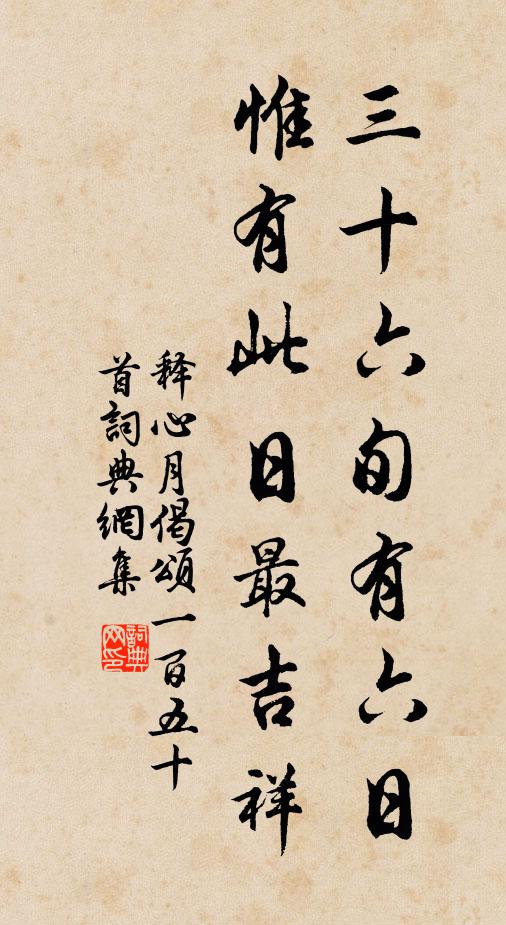 三十六旬有六日
惟有此日最吉祥
释心月偈頌一百五十
首詞典網集
詞典网印